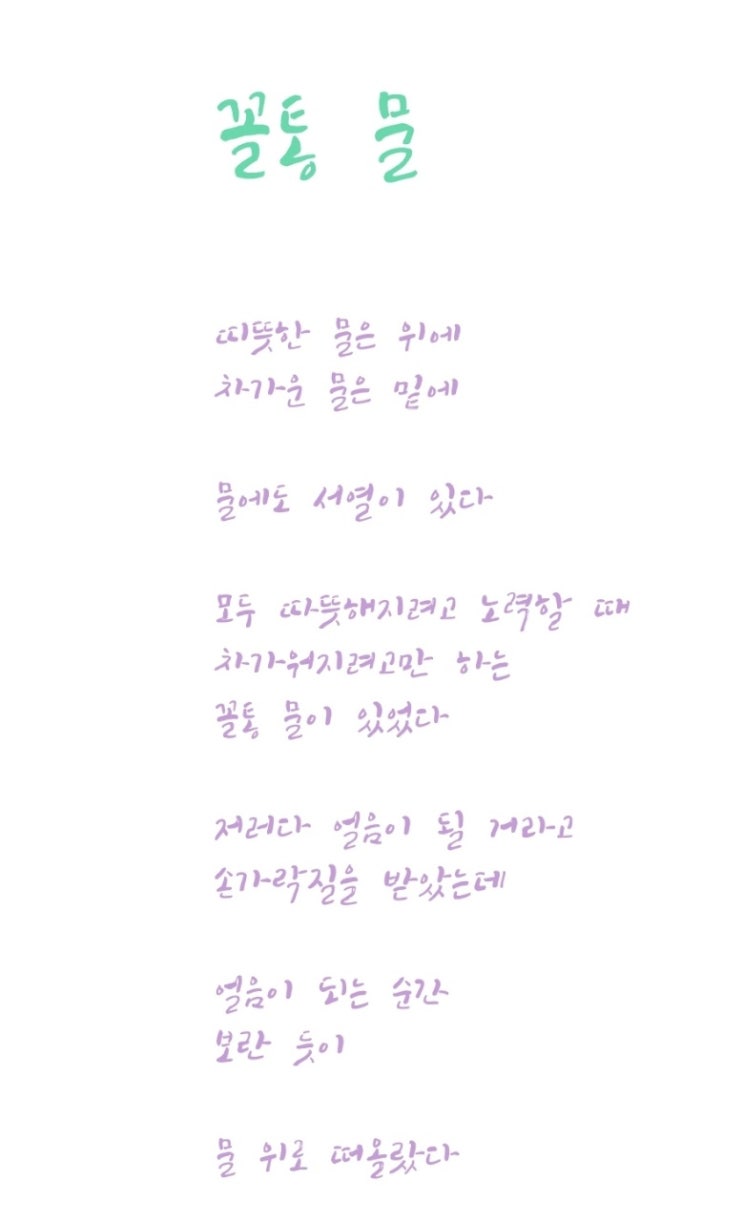 꼴통 물
따뜻한 물은 위에
차가운 물은 밑에
물에도 서열이 있다
모두 따뜻해지려고 노력할 때
차가워지려고만 하는
꼴통 물이 있었다
저러다 얼음이 될 거라고
손가락질을 받았는데
얼음이 되는 순간
보란 듯이
물 위로 떠올랐다